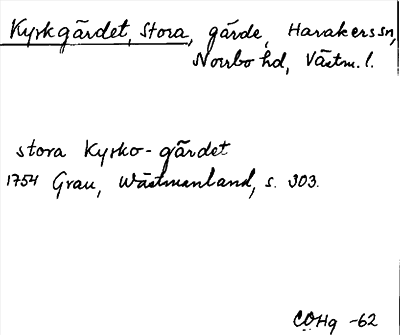 Kyrkgärdet, stora, gärde, Harakers sn,
Norrbo hd, Västm. l.
stora Kyrko-gärdet
1754 Grau, Wästmanland, s. 303.
COHg -62